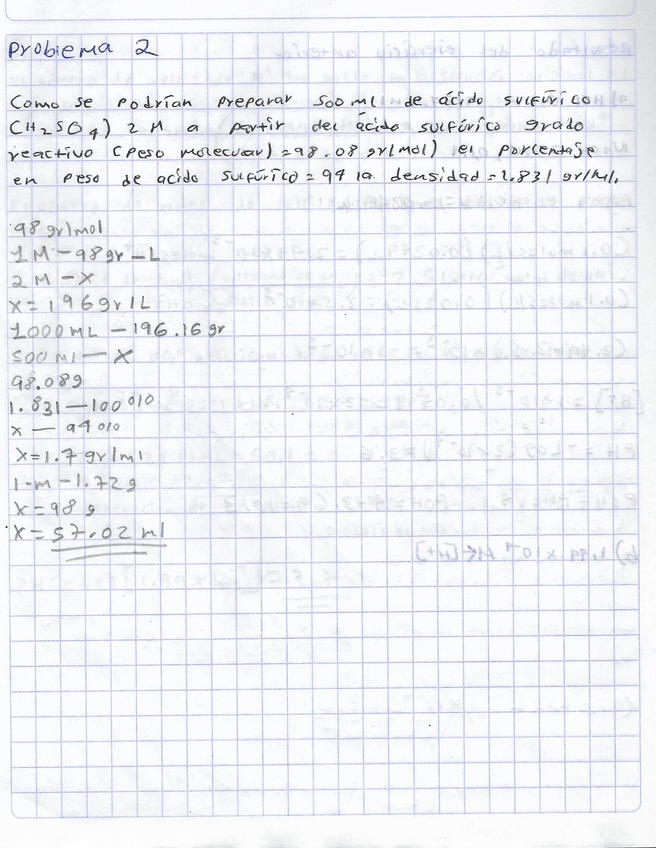 Problema 2
Como se podrían preparar 500 ml de ácido sulfúrico
(H2SO4) 2 M a partir del ácido sulfúrico grado
reactivo (peso molecular) = 98.08 gr/mol) el porcentaje
en peso de acido sulfúrico = 94 la densidad = 1.831 gr/ml.
98 gr/mol
1 M - 98 gr - L
2 M - X
X = 196 gr/L
1000 ML - 196.16 gr
500 ml - X
98.08g
1.831 - 100 0/0
x - 94 0/0
X = 1.7 gr/ml
1-m - 1.72 g
X = 98 g
X = 57.02 ml